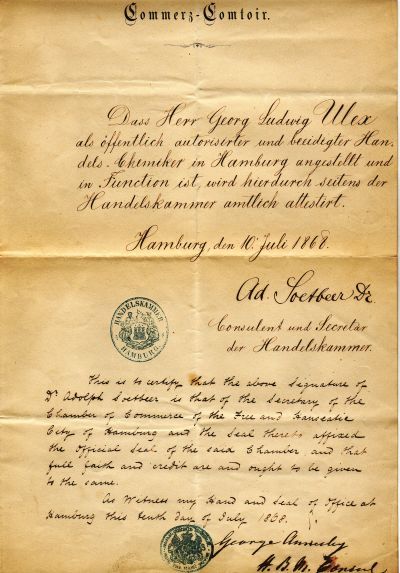 Commerz-Comtoir.
Dass Herr Georg Ludwig Ulex
als öffentlich autorisirter und beeidigter Han-
dels-Chemiker in Hamburg angestellt und
in Function ist, wird hierdurch seitens der
Handelskammer amtlich attestirt.
Hamburg, den 10. Juli 1868.
Ad. Soetbeer Dr.
HANDELSKAMMER
HAMBURG.
Consulent und Secretär
der Handelskammer.
This is to certify that the above Signature of
Dr Adolph Soetbeer is that of the Secretary of the
Chamber of Commerce of the Free and Hanseatic
City of Hamburg and the Seal thereto affixed
the Official Seal of the said Chamber and that
full faith and credit are and ought to be given
to the same.
As Witness my Hand and Seal of Office at
Hamburg this tenth day of July 1868.
George Annesley
H. B. M. Consul